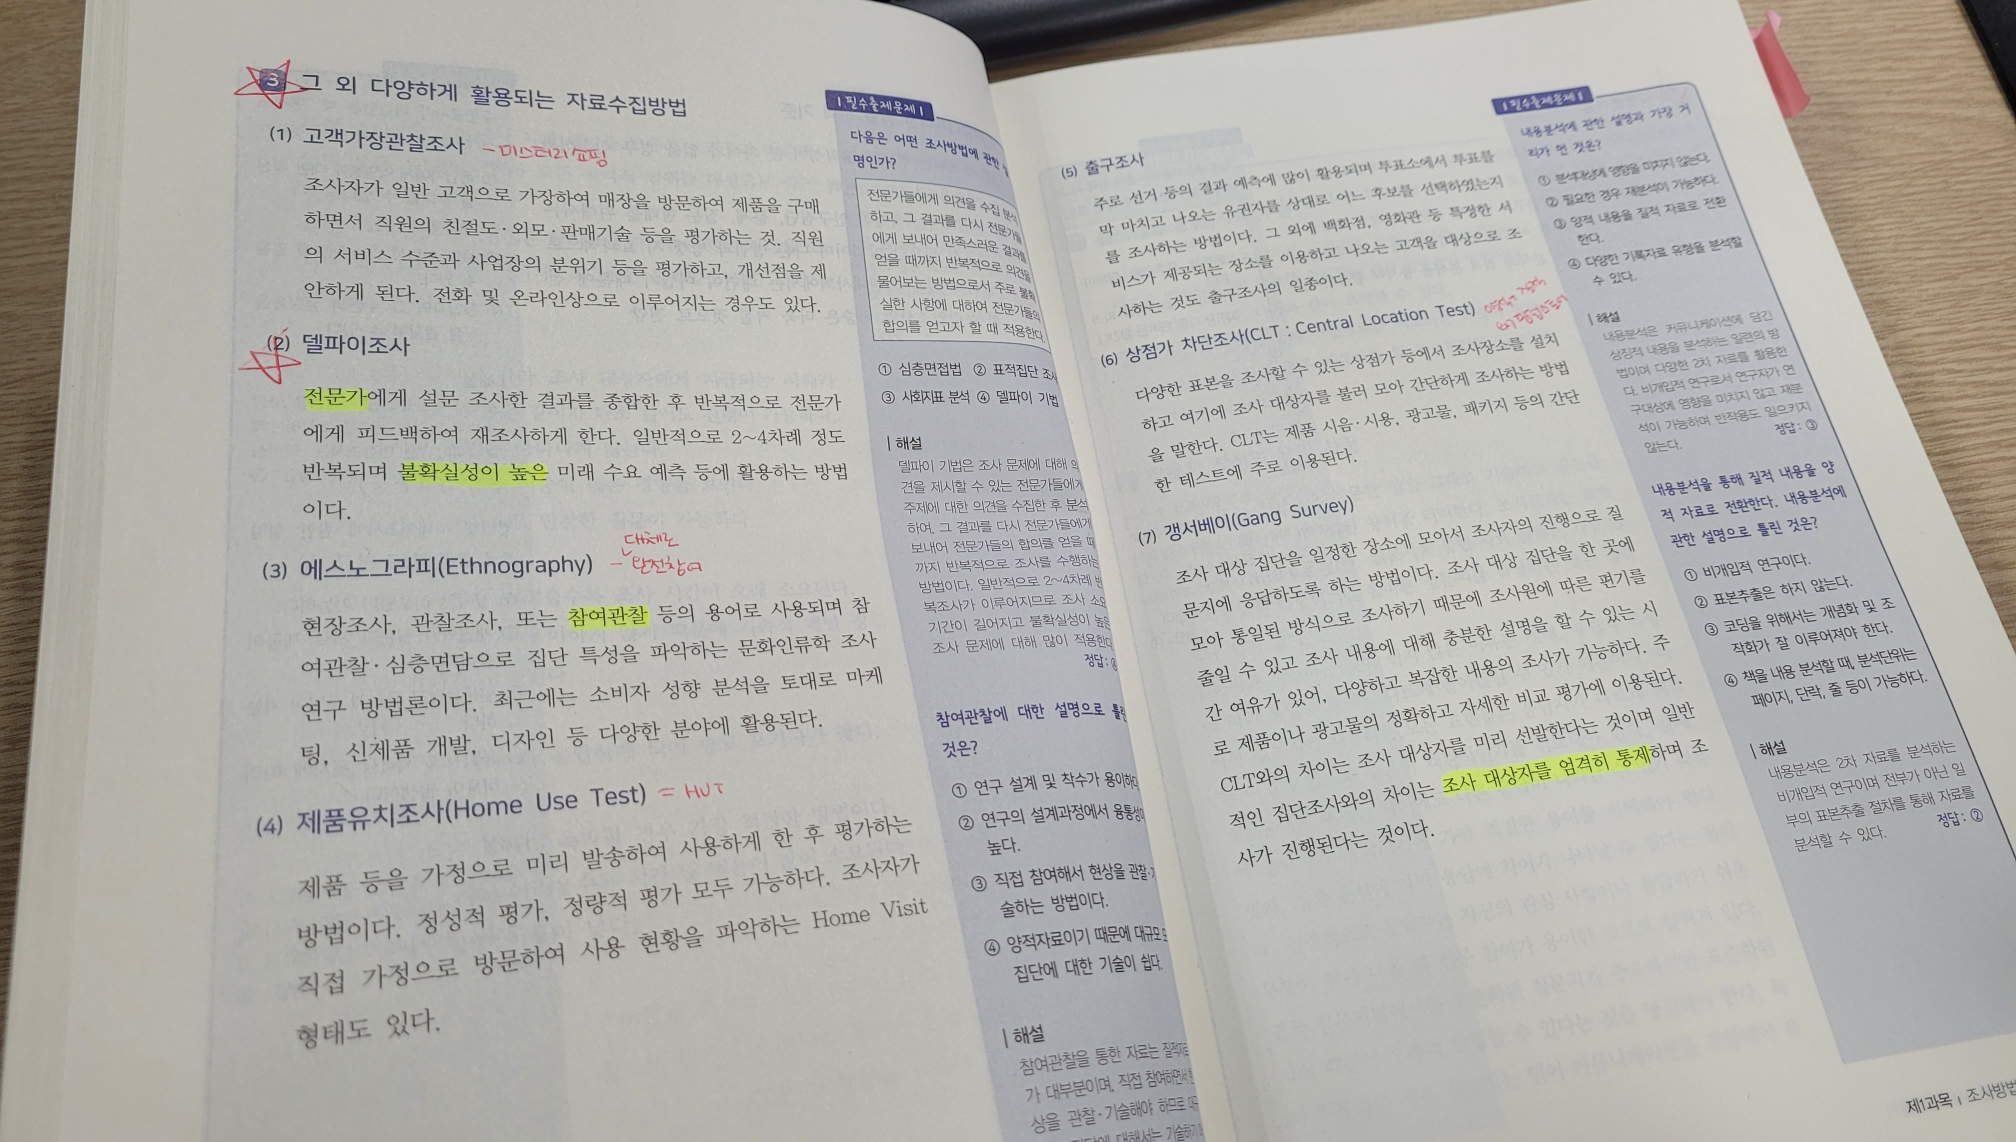 3 그 외 다양하게 활용되는 자료수집방법
(1) 고객가장관찰조사 - 미스터리 쇼핑
조사자가 일반 고객으로 가장하여 매장을 방문하여 제품을 구매
하면서 직원의 친절도·외모·판매기술 등을 평가하는 것. 직원
의 서비스 수준과 사업장의 분위기 등을 평가하고, 개선점을 제
안하게 된다. 전화 및 온라인상으로 이루어지는 경우도 있다.
(2) 델파이조사
전문가에게 설문 조사한 결과를 종합한 후 반복적으로 전문가
에게 피드백하여 재조사하게 한다. 일반적으로 2~4차례 정도
반복되며 불확실성이 높은 미래 수요 예측 등에 활용하는 방법
이다.
(3) 에스노그라피(Ethnography) - 완전참여
대체로
현장조사, 관찰조사, 또는 참여관찰 등의 용어로 사용되며 참
여관찰·심층면담으로 집단 특성을 파악하는 문화인류학 조사
연구 방법론이다. 최근에는 소비자 성향 분석을 토대로 마케
팅, 신제품 개발, 디자인 등 다양한 분야에 활용된다.
(4) 제품유치조사(Home Use Test) = HUT
제품 등을 가정으로 미리 발송하여 사용하게 한 후 평가하는
방법이다. 정성적 평가, 정량적 평가 모두 가능하다. 조사자가
직접 가정으로 방문하여 사용 현황을 파악하는 Home Visit
형태도 있다.
필수출제문제
다음은 어떤 조사방법에 관한
명인가?
전문가들에게 의견을 수집 분석
하고, 그 결과를 다시 전문가들
에게 보내어 만족스러운 결과를
얻을 때까지 반복적으로 의견을
물어보는 방법으로서 주로 불확
실한 사항에 대하여 전문가들의
합의를 얻고자 할 때 적용한다.
① 심층면접법 ② 표적집단
③ 사회지표 분석 ④ 델파이 기법
해설
델파이 기법은 조사 문제에 대해
견을 제시할 수 있는 전문가들에게
주제에 대한 의견을 수집한 후 분석
하여, 그 결과를 다시 전문가들에게
보내어 전문가들의 합의를 얻을 때
까지 반복적으로 조사를 수행하는
방법이다. 일반적으로 2~4차례
복조사가 이루어지므로 조사
기간이 길어지고 불확실성이
조사 문제에 대해 많이 적용한다.
정답:
참여관찰에 대한 설명으로
것은?
① 연구 설계 및 착수가
② 연구의 설계과정에서
높다.
③ 직접 참여해서 현상을 관찰·
술하는 방법이다.
④ 양적자료이기 때문에 대규모
집단에 대한 기술이 쉽다.
해설
참여관찰을 통한 자료는
가 대부분이며, 직접
상을 관찰·기술해야 하므로
(5) 출구조사
주로 선거 등의 결과 예측에 많이 활용되며 투표소에서 투표를
막 마치고 나오는 유권자를 상대로 어느 후보를 선택하였는지
를 조사하는 방법이다. 그 외에 백화점, 영화관 등 특정한 서
비스가 제공되는 장소를 이용하고 나오는 고객을 대상으로 조
사하는 것도 출구조사의 일종이다.
(6) 상점가 차단조사(CLT : Central Location Test)
다양한 표본을 조사할 수 있는 상점가 등에서 조사장소를 설치
하고 여기에 조사 대상자를 불러 모아 간단하게 조사하는 방법
을 말한다. CLT는 제품 시음·시용, 광고물, 패키지 등의 간단
한 테스트에 주로 이용된다.
(7) 갱서베이(Gang Survey)
조사 대상 집단을 일정한 장소에 모아서 조사자의 진행으로 질
문지에 응답하도록 하는 방법이다. 조사 대상 집단을 한 곳에
모아 통일된 방식으로 조사하기 때문에 조사원에 따른 편기를
줄일 수 있고 조사 내용에 대해 충분한 설명을 할 수 있는 시
간 여유가 있어, 다양하고 복잡한 내용의 조사가 가능하다. 주
로 제품이나 광고물의 정확하고 자세한 비교 평가에 이용된다.
CLT와의 차이는 조사 대상자를 미리 선발한다는 것이며 일반
적인 집단조사와의 차이는 조사 대상자를 엄격히 통제하며 조
사가 진행된다는 것이다.
필수출제문제
내용분석에 관한 설명과 가장 거
리가 먼 것은?
① 분석대상에 영향을 미치지 않는다.
② 필요한 경우 재분석이 가능하다.
③ 양적 내용을 질적 자료로 전환
한다.
④ 다양한 기록자료 유형을 분석할
수 있다.
해설
내용분석은 커뮤니케이션에 담긴
상징적 내용을 분석하는 일련의 방
법이며 다양한 2차 자료를 활용한
다. 비개입적 연구로서 연구자가 연
구대상에 영향을 미치지 않고 재분
석이 가능하며 반작용도 일으키지
않는다.
정답: ③
내용분석을 통해 질적 내용을 양
적 자료로 전환한다. 내용분석에
관한 설명으로 틀린 것은?
① 비개입적 연구이다.
② 표본추출은 하지 않는다.
③ 코딩을 위해서는 개념화 및 조
작화가 잘 이루어져야 한다.
④ 책을 내용 분석할 때, 분석단위는
페이지, 단락, 줄 등이 가능하다.
해설
내용분석은 2차 자료를 분석하는
비개입적 연구이며 전부가 아닌 일
부의 표본추출 절차를 통해 자료를
분석할 수 있다.
정답: ②
제1과목 | 조사방법